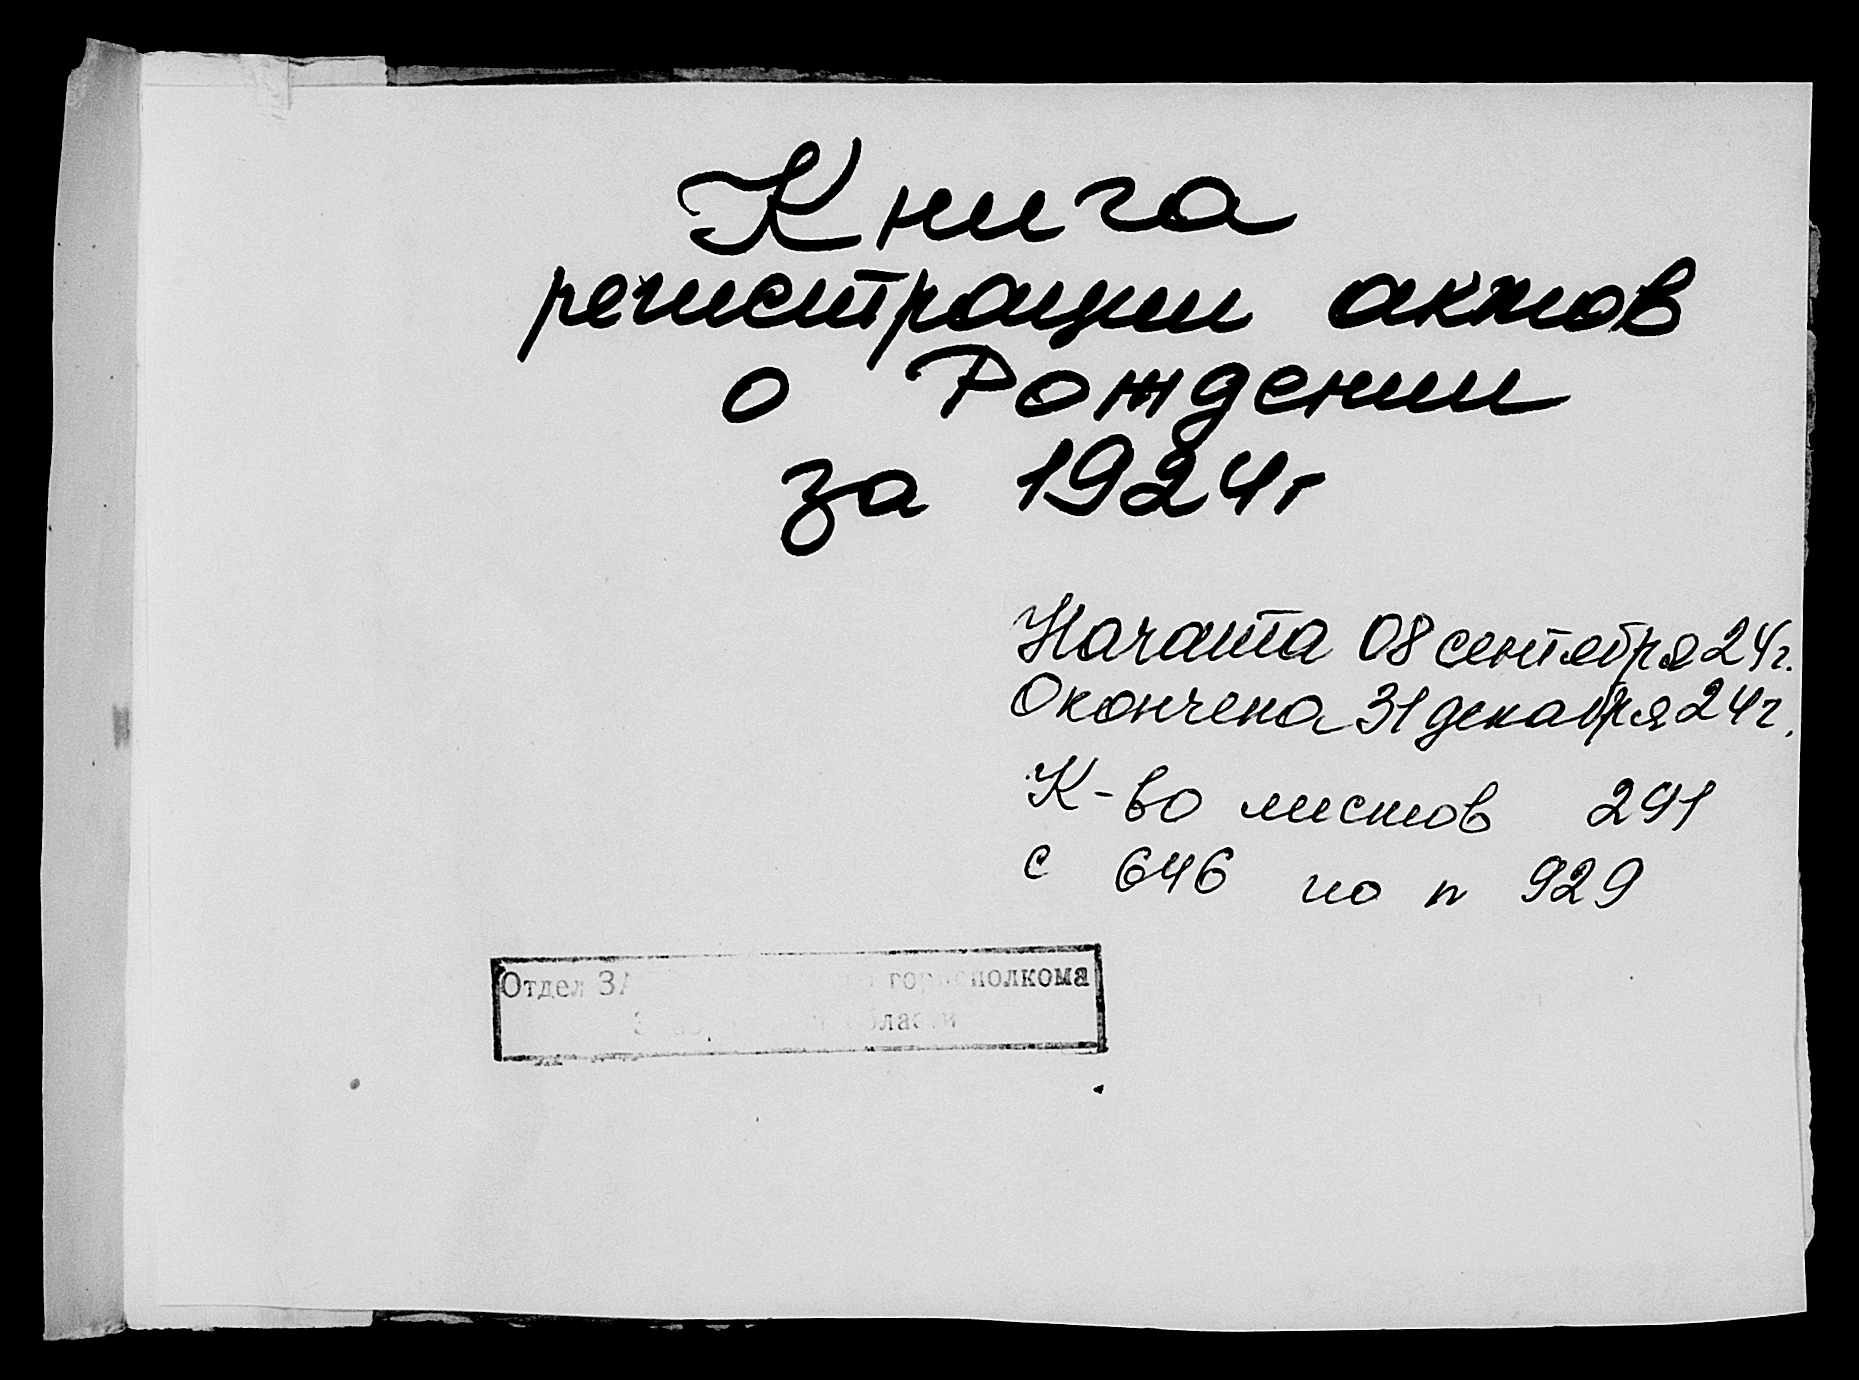 Книга
регистрации актов
о Рождении
за 1924г
Начата 08 сентября 24г.
Окончена 31 декабря 24г.
К-во листов 291
с 646 по п 929
Отдел горисполкома
области